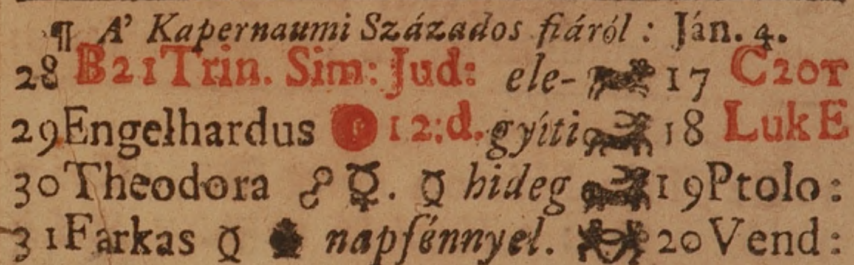 ¶ A' Kapernaumi Százados fiáról : Ján. 4.
28 B21Trin. Sim: Jud: ele- 17 C20T
29Engelhardus 12:d. gyíti 18 Luk E
30Theodora ☍ ☿. ☿ hideg 19Ptolo:
31Farkas ☿ napfénnyel. 20Vend: